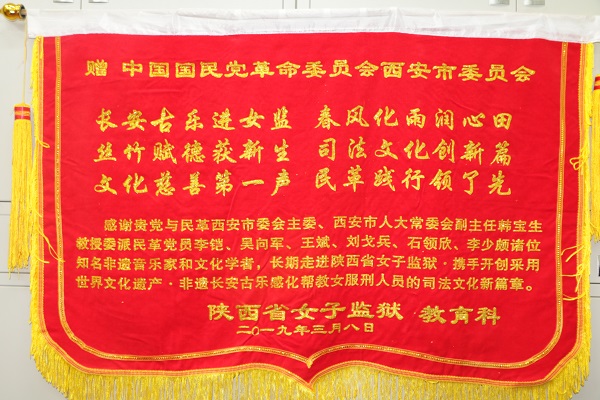 赠 中国国民党革命委员会西安市委员会
长安古乐进女监 春风化雨润心田
丝竹赋德获新生 司法文化创新篇
文化慈善第一声 民革践行领了先
感谢贵党与民革西安市委会主委、西安市人大常委会副主任韩宝生
教授委派民革党员李铠、吴向军、王斌、刘戈兵、石领欣、李少颇诸位
知名非遗音乐家和文化学者，长期走进陕西省女子监狱·携手开创采用
世界文化遗产·非遗长安古乐感化帮教女服刑人员的司法文化新篇章。
陕西省女子监狱 教育科
二〇一九年三月八日